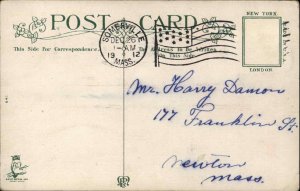 POST CARD
This Side For Correspondence.
Address to be Written
on This Side.
SOMERVILLE
DEC 26
1-AM
1912
MASS.
NEW YORK
LONDON
Mr. Harry Damon
177 Franklin St.
Newton
Mass.